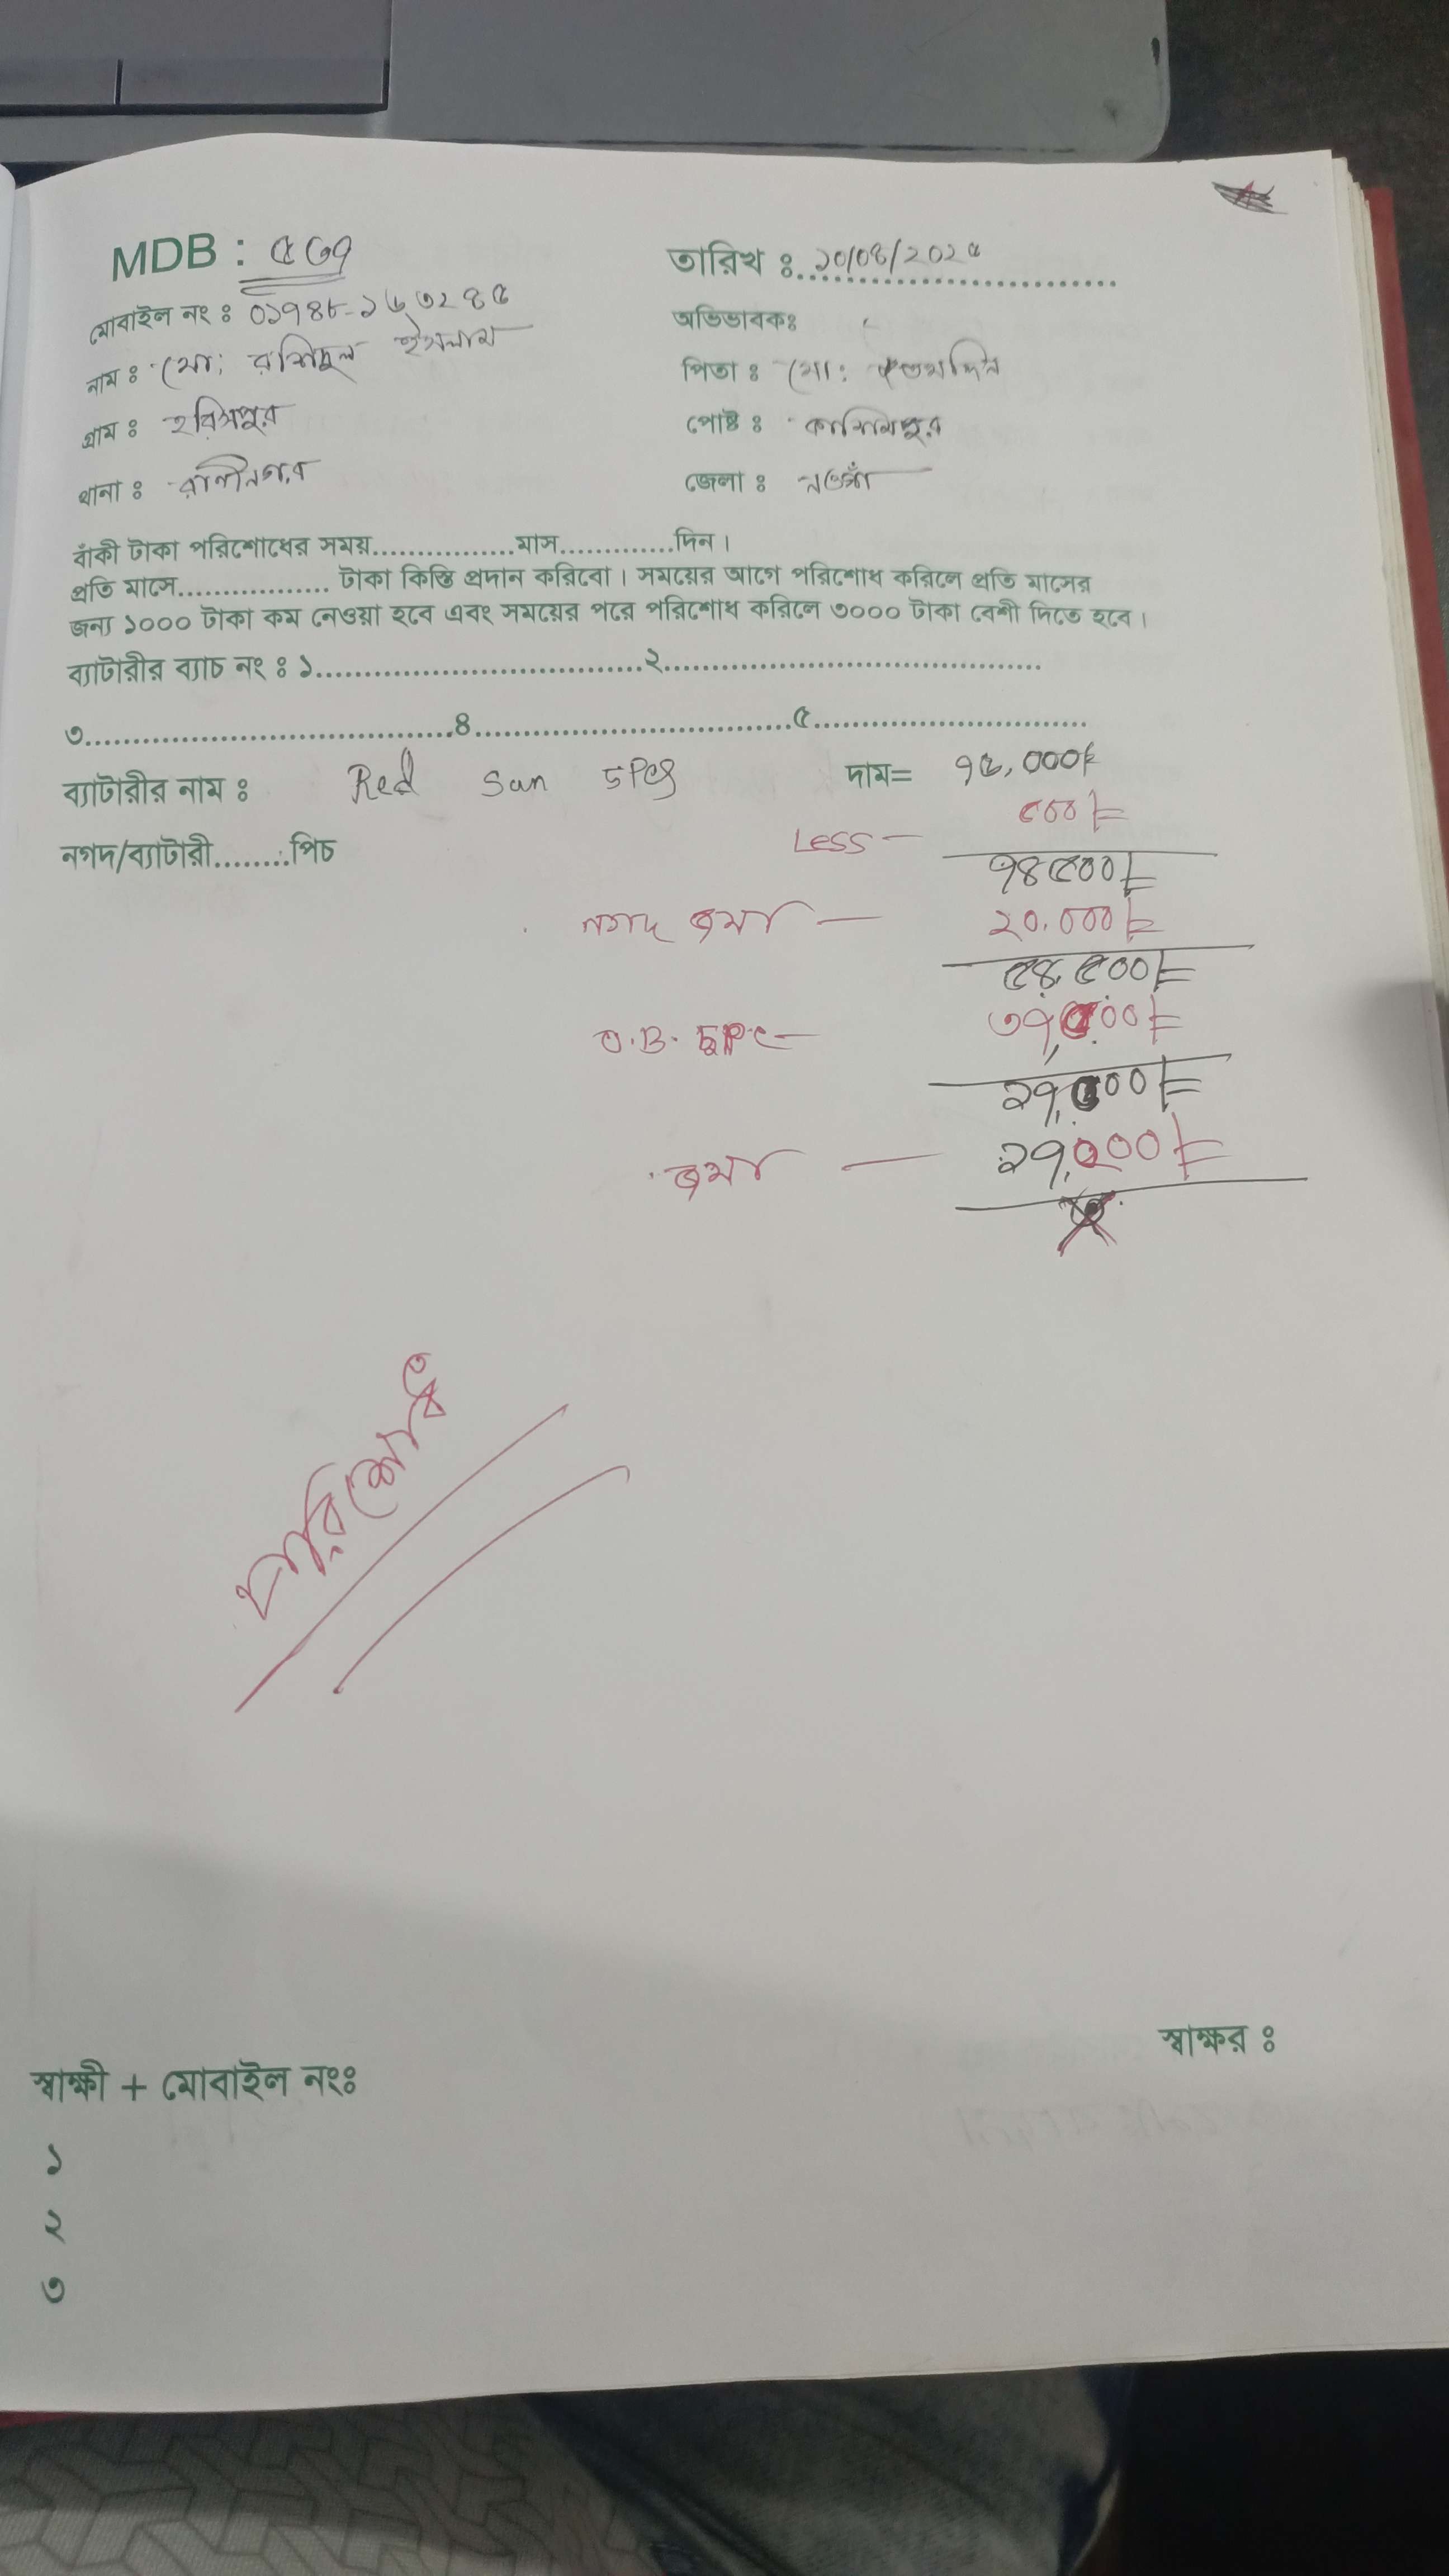 MDB : ৫৩৭
তারিখ ঃ ২০/০৪/২০২৫
মোবাইল নং ঃ ০১৭৪৮-১৬৩২৪৫
অভিভাবকঃ
নাম ঃ মো: রশিদুল ইসলাম
পিতা ঃ মো:
গ্রাম ঃ হরিসপুর
পোষ্ট ঃ কাশিমপুর
থানা ঃ রাণীনগর
জেলা ঃ নওগাঁ
বাঁকী টাকা পরিশোধের সময়................মাস.............দিন।
প্রতি মাসে................. টাকা কিস্তি প্রদান করিবো। সময়ের আগে পরিশোধ করিলে প্রতি মাসের
জন্য ১০০০ টাকা কম নেওয়া হবে এবং সময়ের পরে পরিশোধ করিলে ৩০০০ টাকা বেশী দিতে হবে।
ব্যাটারীর ব্যাচ নং ঃ ১..................................২.......................................
৩......................................৪.................................৫............................
ব্যাটারীর নাম ঃ Red Sun 5Pcs দাম= ৭৫,০০০/-
Less — ৫০০/=
নগদ/ব্যাটারী........পিচ
৭৪৫০০/=
নগদ জমা — ২০,০০০/=
৫৪,৫০০/=
O.B. 5Pc —
জমা —
পরিশোধিত
স্বাক্ষর ঃ
স্বাক্ষী + মোবাইল নংঃ
১
২
৩